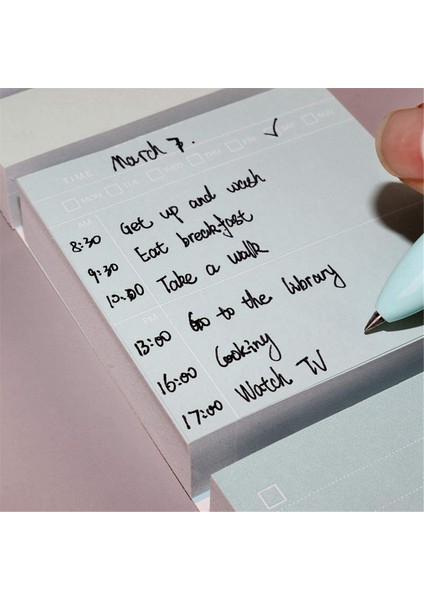 TIME March 7.
MON TUE WED THU FRI ✓ SAT SUN
AM
8:30 Get up and wash
9:30 Eat breakfast
10:30 Take a walk
PM
13:00 Go to the library
16:00 Cooking
17:00 Watch TV